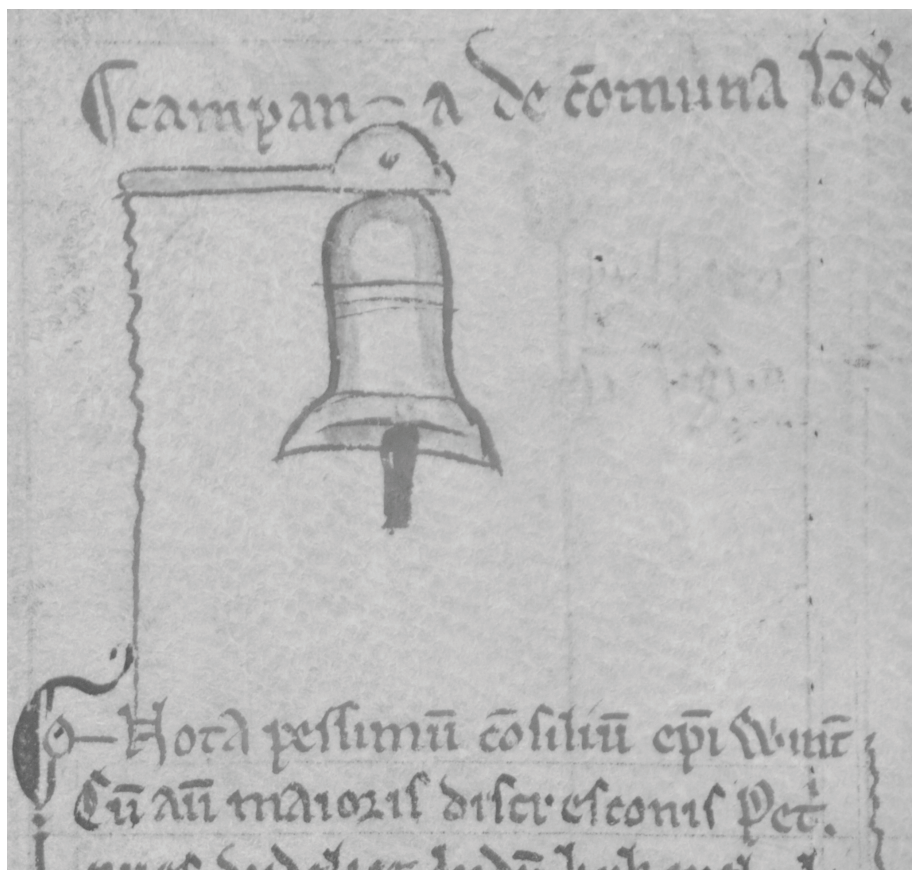 ¶ campana de cōmuna lōd̄.
Nota pessimū cōsiliū ep̄i Wint̄
Cū aū maioris discresconis Pet.